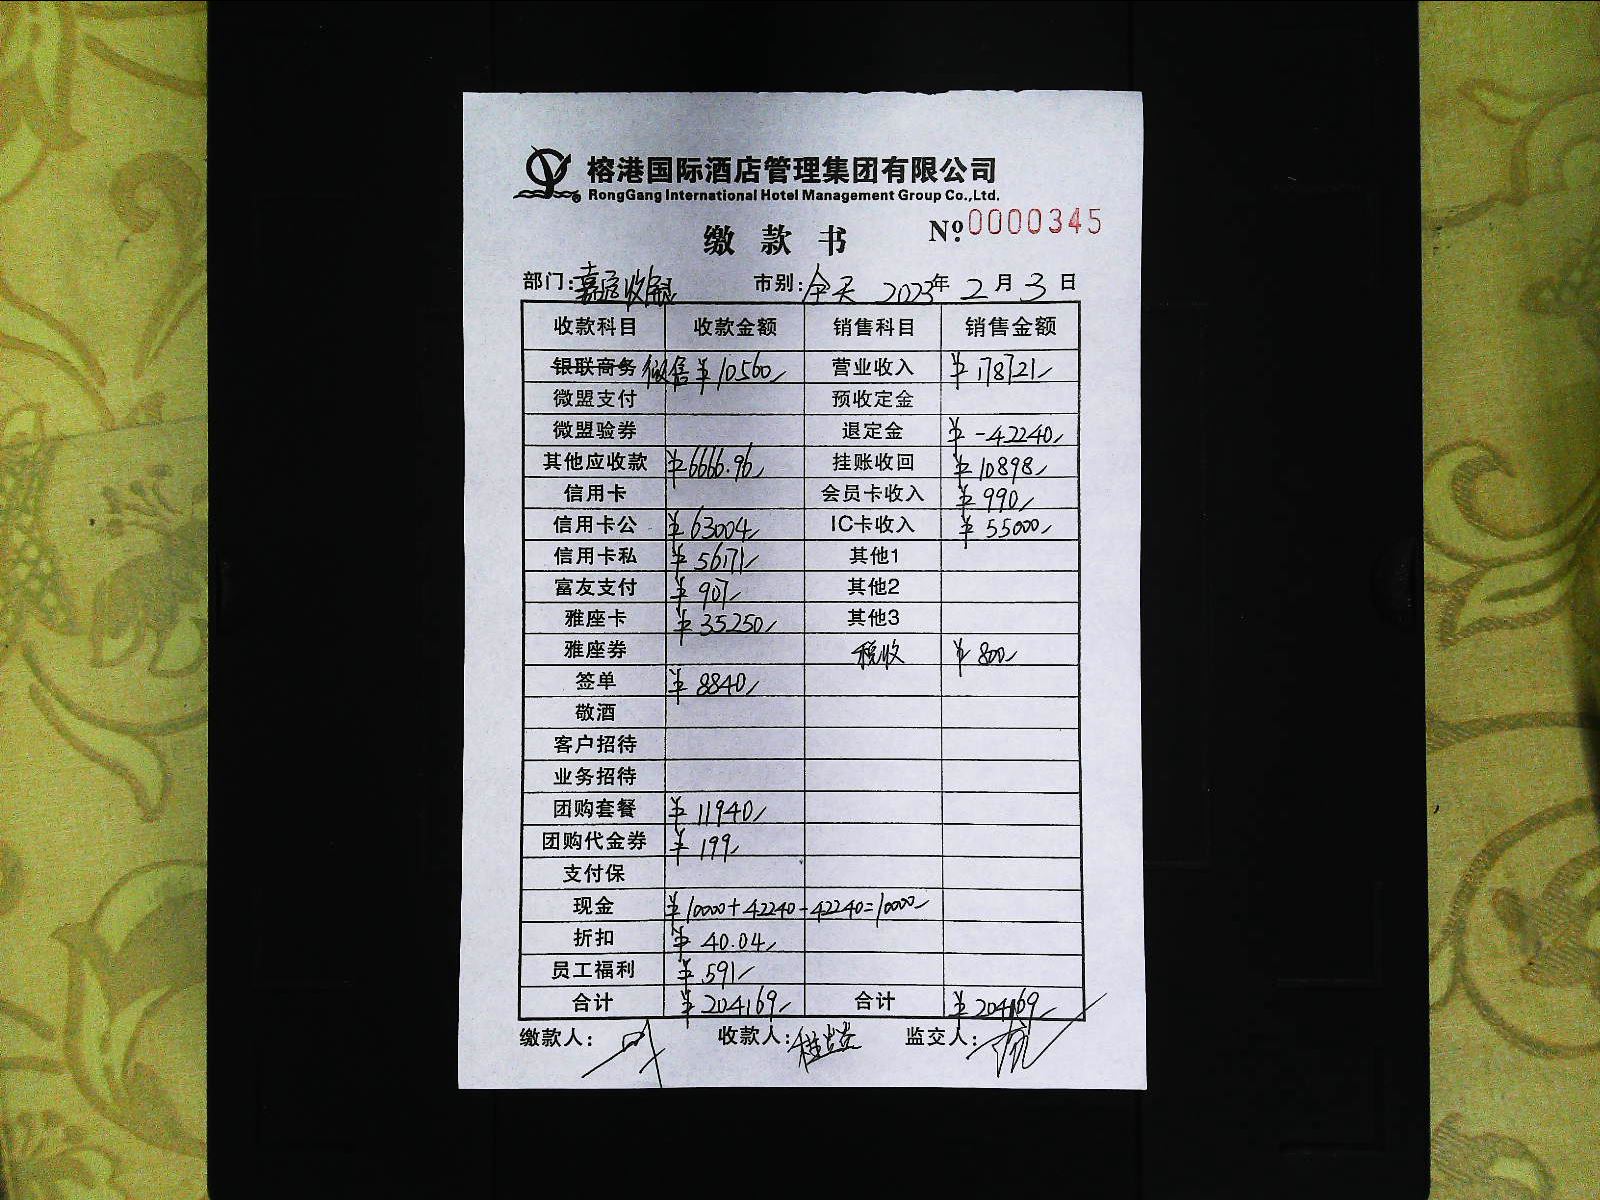 榕港国际酒店管理集团有限公司
RongGang International Hotel Management Group Co.,Ltd.
缴款书 No.0000345
部门: 市别:全天 2023年2月3日
收款科目 收款金额 销售科目 销售金额
银联商务 微售 ¥10560 营业收入 ¥178721
微盟支付 预收定金
微盟验券 退定金 ¥-42240
其他应收款 ¥6666.96 挂账收回 ¥10898
信用卡 会员卡收入 ¥990
信用卡公 ¥63004 IC卡收入 ¥55000
信用卡私 ¥56171 其他1
富友支付 ¥907 其他2
雅座卡 ¥35250 其他3
雅座券 税收 ¥800
签单 ¥8840
敬酒
客户招待
业务招待
团购套餐 ¥11940
团购代金券 ¥199
支付保
现金 ¥10000+42240-42240=10000
折扣 ¥40.04
员工福利 ¥591
合计 ¥204169 合计 ¥204169
缴款人: 收款人: 监交人: